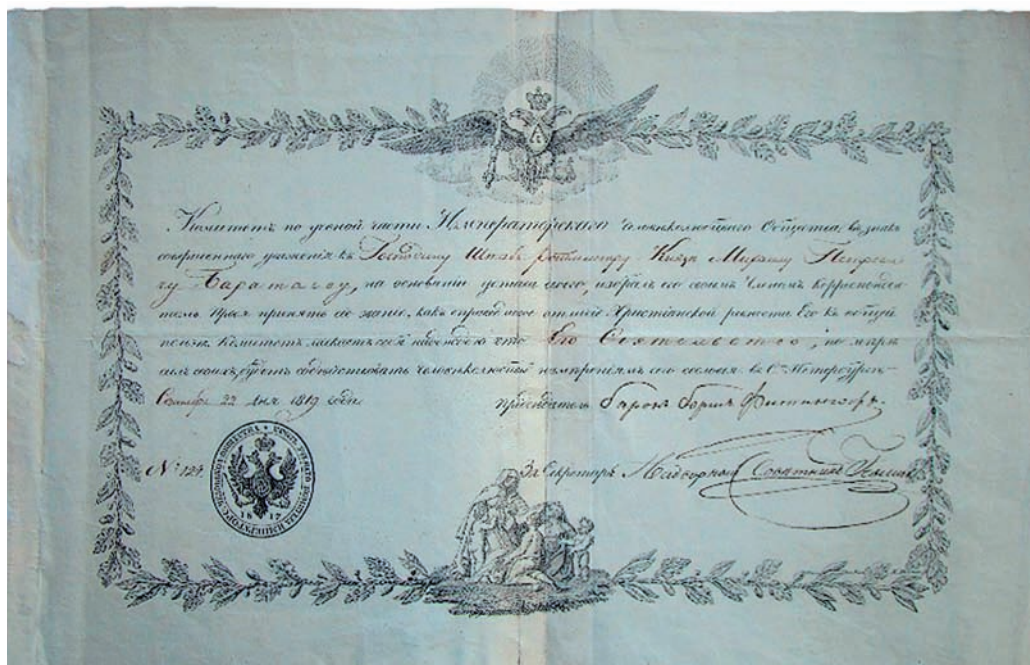 Комитетъ по ученой части Императорскаго Человѣколюбиваго Общества, въ знакъ
совершеннаго уваженія къ Господину Штабъ Ротмистру Князю Михаилу Петрови
чу Баратаеву, на основаніи устава своего, избралъ его своимъ Членомъ Корреспонден
томъ. Прося принять сіе званіе, какъ справедливое отличіе Христіанской ревности Его къ общей
пользѣ, Комитетъ ласкаетъ себя надеждою что Его Сіятельство, по мѣрѣ
силъ своихъ, будетъ содѣйствовать человѣколюбивымъ намѣреніямъ сего сословія. въ С. Петербургѣ
22 дня 1819 года.
Предсѣдатель Баронъ Борисъ Фитингофъ.
№ 124
За Секретаря Надворный Совѣтникъ
ПЕЧАТЬ УЧЕНАГО КОМИТЕТА ИМПЕРАТОРС. ЧЕЛОВѢКОЛЮБ. ОБЩЕСТВА